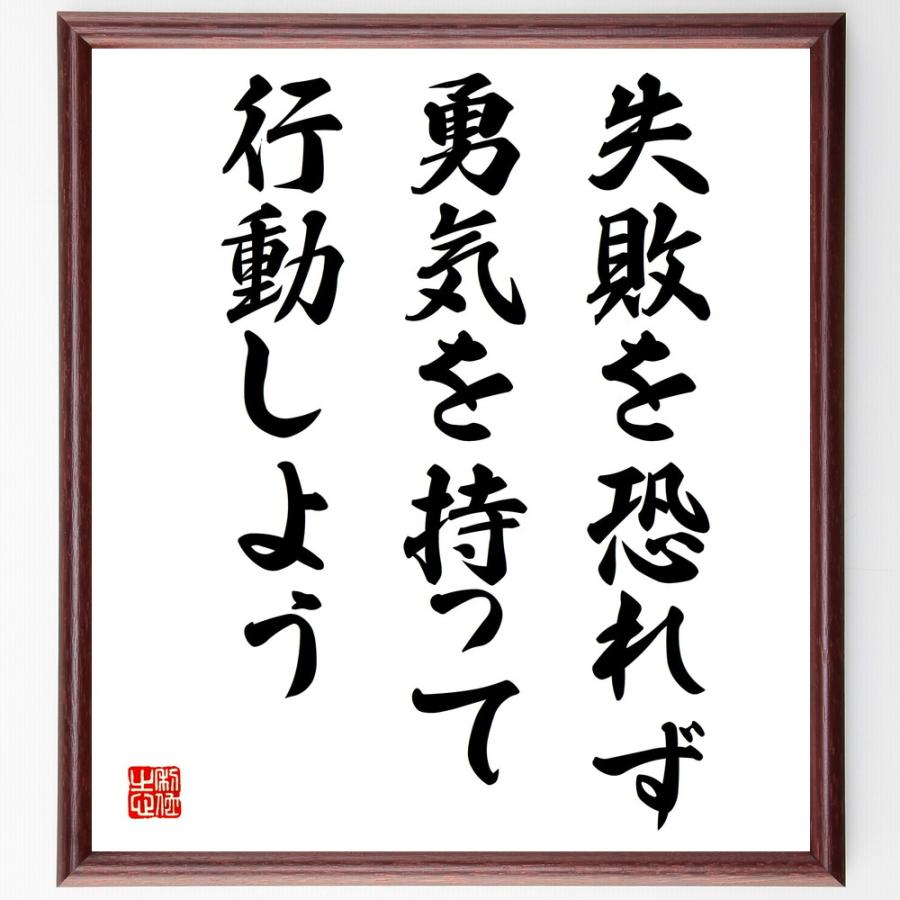 失敗を恐れず
勇気を持って
行動しよう